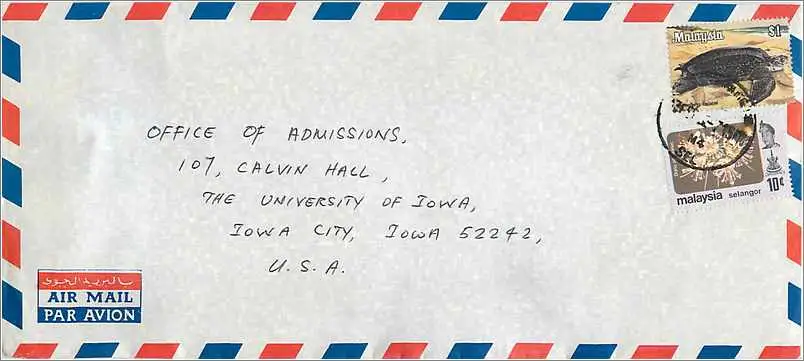 Malaysia $1
OFFICE OF ADMISSIONS,
107, CALVIN HALL,
THE UNIVERSITY OF IOWA,
IOWA CITY, IOWA 52242,
U. S. A.
10¢
malaysia selangor
بالبريد الجوى
AIR MAIL
PAR AVION